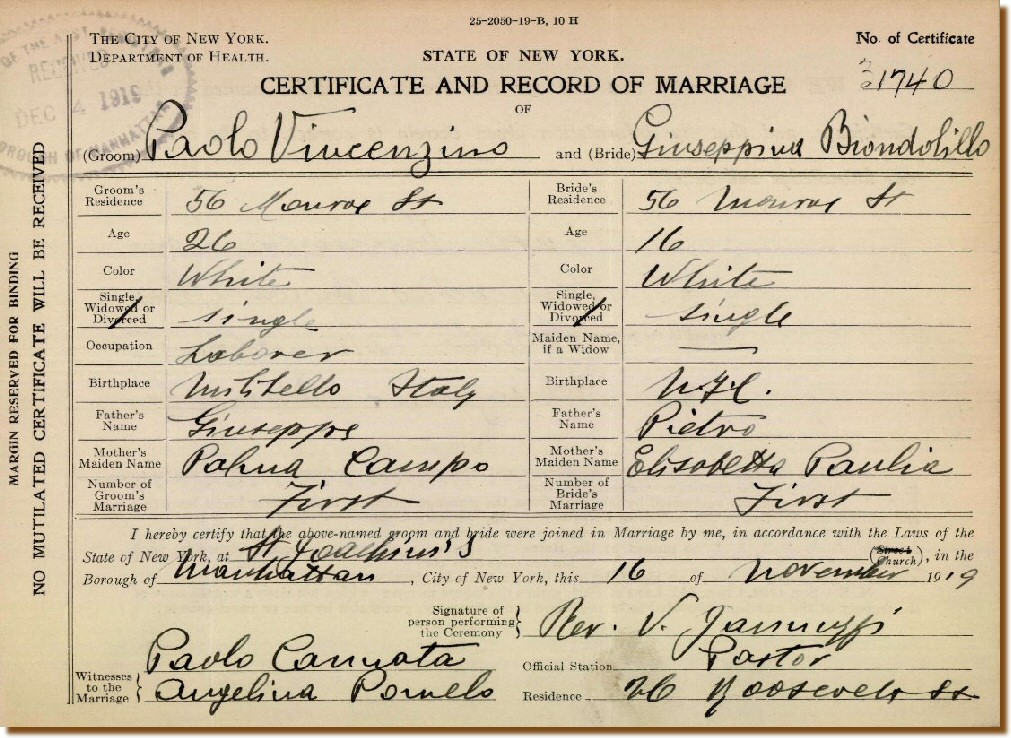 25-2050-19-B, 10 H
THE CITY OF NEW YORK.
DEPARTMENT OF HEALTH.
No. of Certificate
STATE OF NEW YORK.
31740
CERTIFICATE AND RECORD OF MARRIAGE
OF
RECEIVED
DEC 4 1919
BOROUGH OF MANHATTAN
(Groom) Paolo Vincenzino and (Bride) Giuseppina Biondolillo
Groom's Residence 56 Monroe St Bride's Residence 56 Monroe St
Age 26 Age 16
Color White Color White
Single, Widowed or Divorced single Single, Widowed or Divorced single
Occupation Laborer Maiden Name, if a Widow —
Birthplace Militello Italy Birthplace N.Y.C.
Father's Name Giuseppe Father's Name Pietro
Mother's Maiden Name Campo Mother's Maiden Name Elisabetta Paulia
Number of Groom's Marriage First Number of Bride's Marriage First
I hereby certify that the above-named groom and bride were joined in Marriage by me, in accordance with the Laws of the
State of New York, at St. Joachim's (Street Church), in the
Borough of Manhattan, City of New York, this 16 of November 1919
Signature of person performing the Ceremony Rev. V. Jannuzzi
Witnesses to the Marriage Paolo Cannata
Angelina
Official Station Pastor
Residence 26 Roosevelt St
MARGIN RESERVED FOR BINDING
NO MUTILATED CERTIFICATE WILL BE RECEIVED